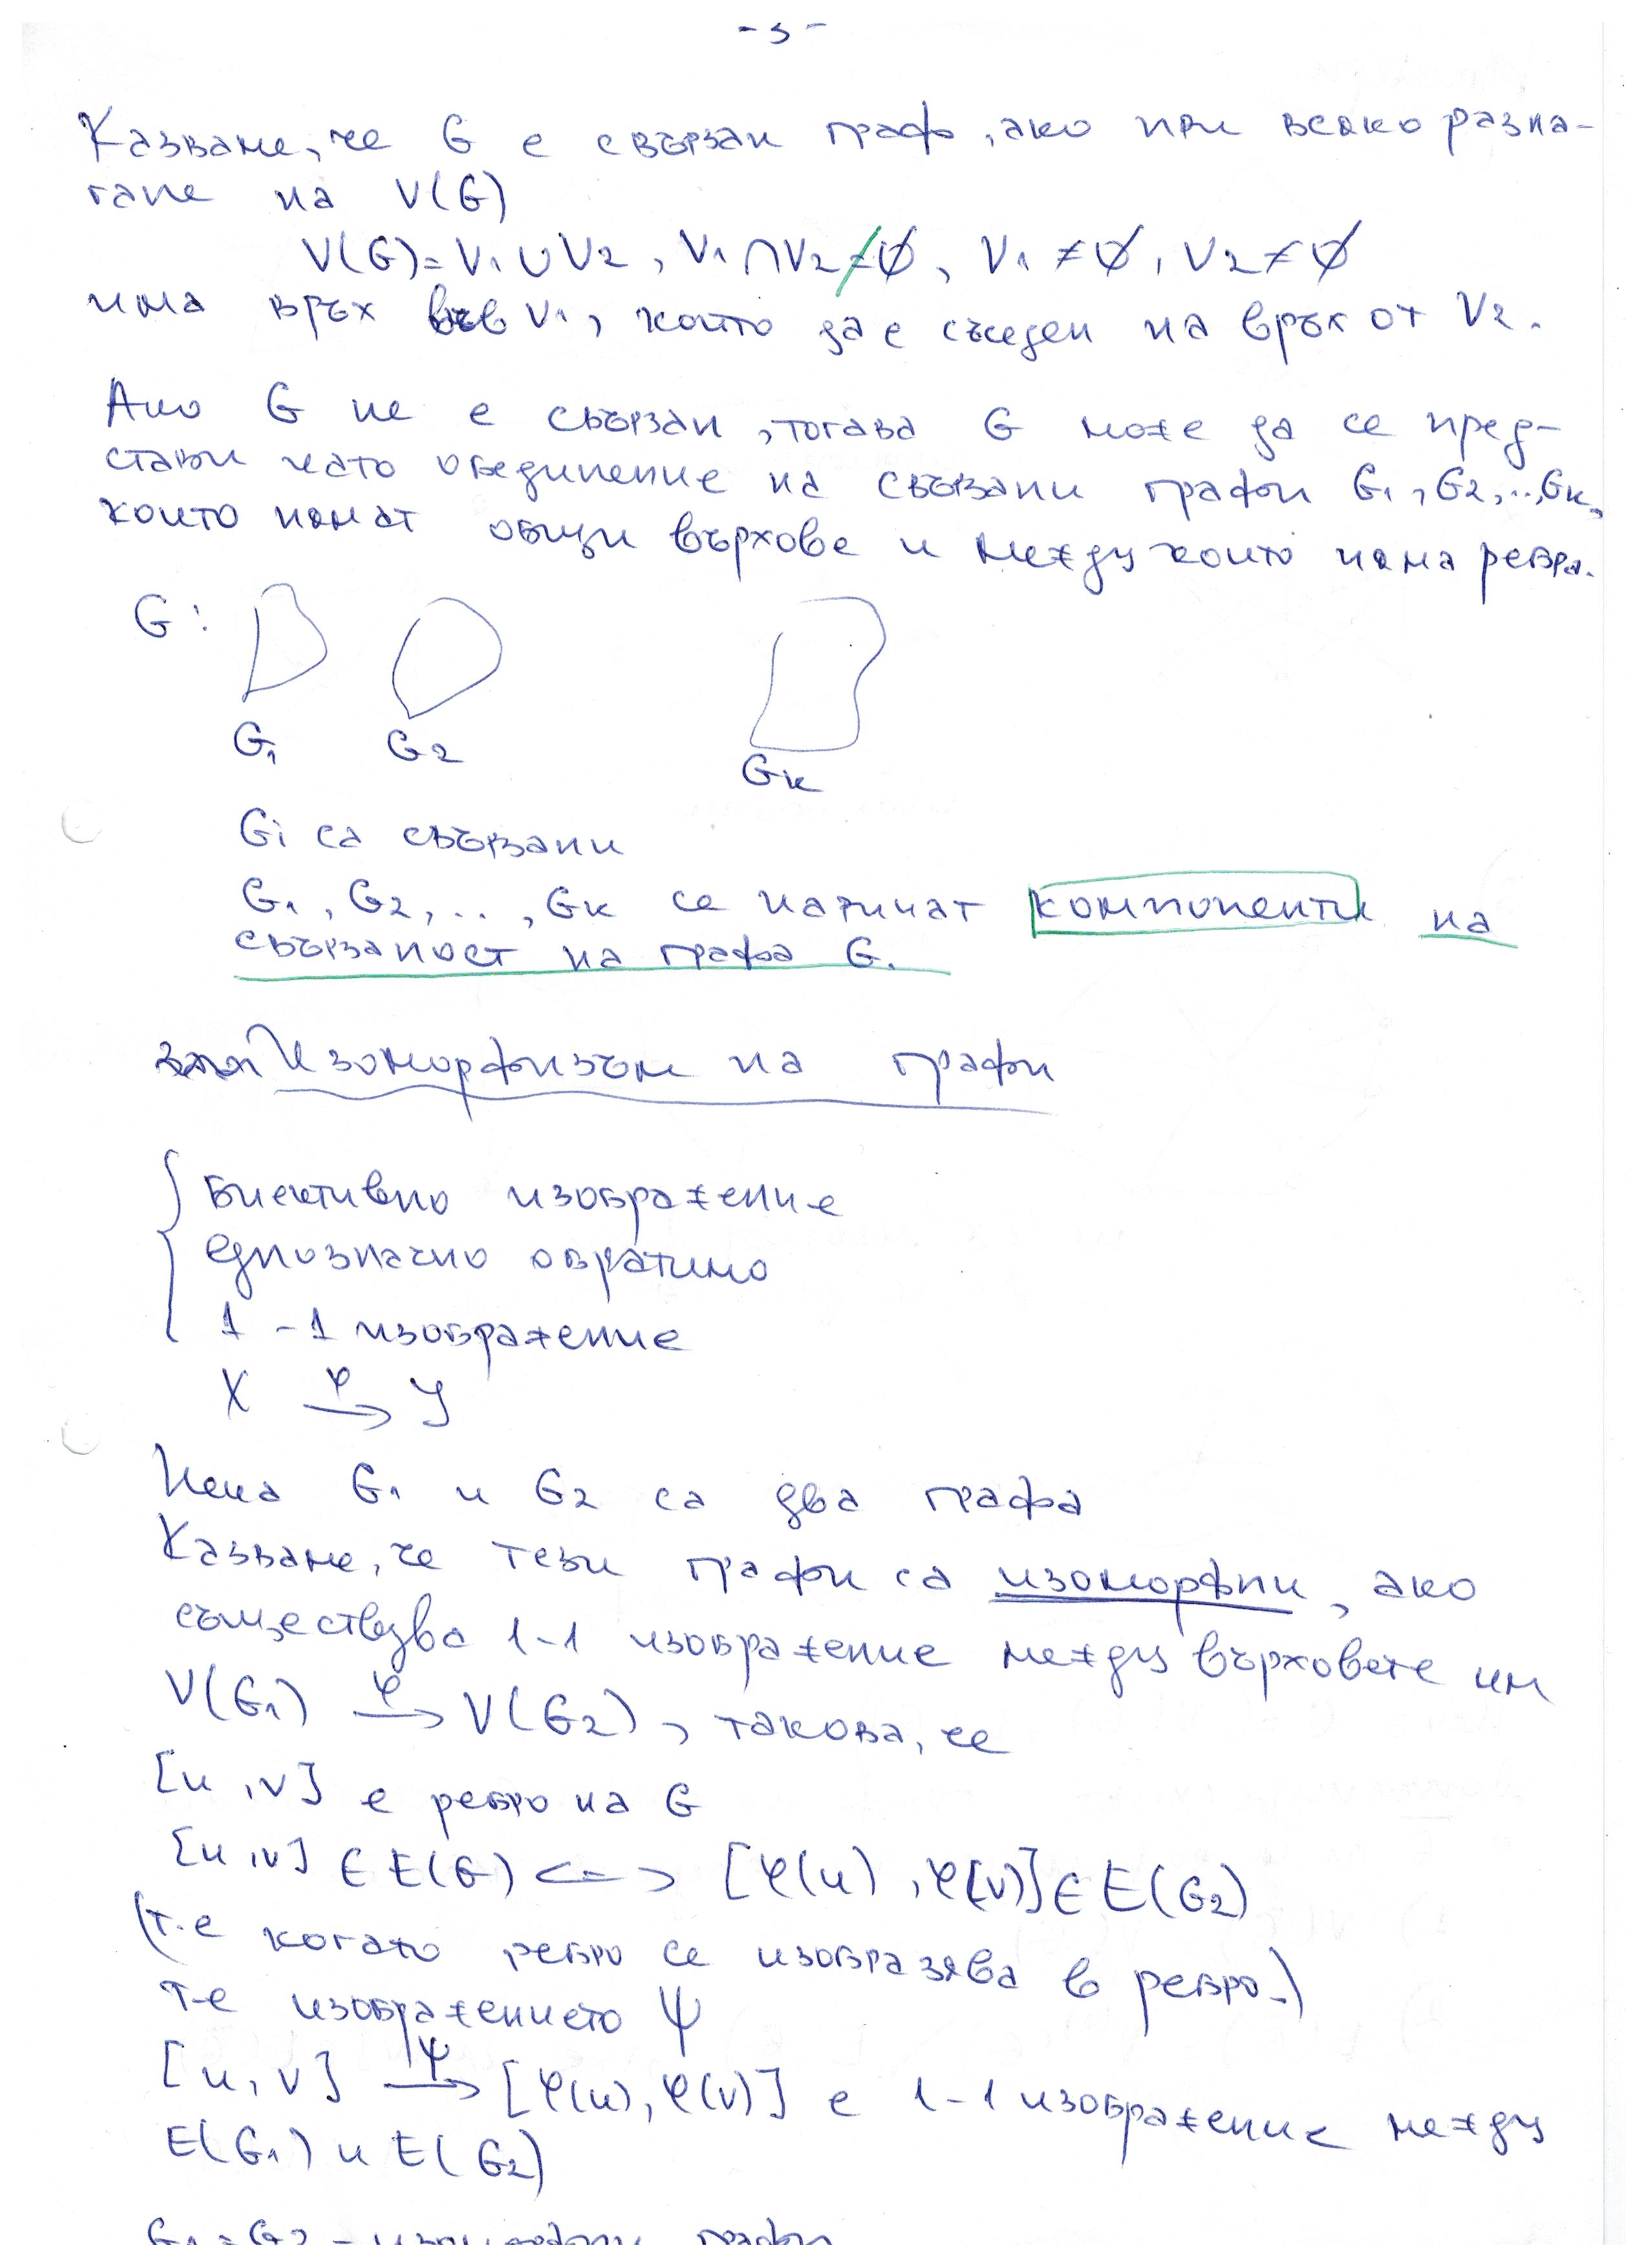 - 3 -
Казваме, че G е свързан граф, ако при всяко разла-
гане на V(G)
V(G) = V₁ ∪ V₂, V₁ ∩ V₂ ≠ ∅, V₁ ≠ ∅, V₂ ≠ ∅
има връх във V₁, който да е съседен на връх от V₂.
Ако G не е свързан, тогава G може да се пред-
стави като обединение на свързани графи G₁, G₂, .., Gк,
които нямат общи върхове и между които няма ребра.
G:
G₁ G₂ Gк
Gi са свързани
G₁, G₂, .., Gк се наричат компоненти на
свързаност на графа G.
Изоморфизъм на графи
Биективно изображение
еднозначно обратимо
1 - 1 изображение
X φ→ Y
Нека G₁ и G₂ са два графа
Казваме, че тези графи са изоморфни, ако
съществува 1-1 изображение между върховете им
V(G₁) φ→ V(G₂), такова, че
[u, v] е ребро на G
[u, v] ∈ E(G) <=> [φ(u), φ(v)] ∈ E(G₂)
(т.е когато ребро се изобразява в ребро.)
т-е изображението Ψ
[u, v] Ψ→ [φ(u), φ(v)] е 1-1 изображение между
E(G₁) и E(G₂)